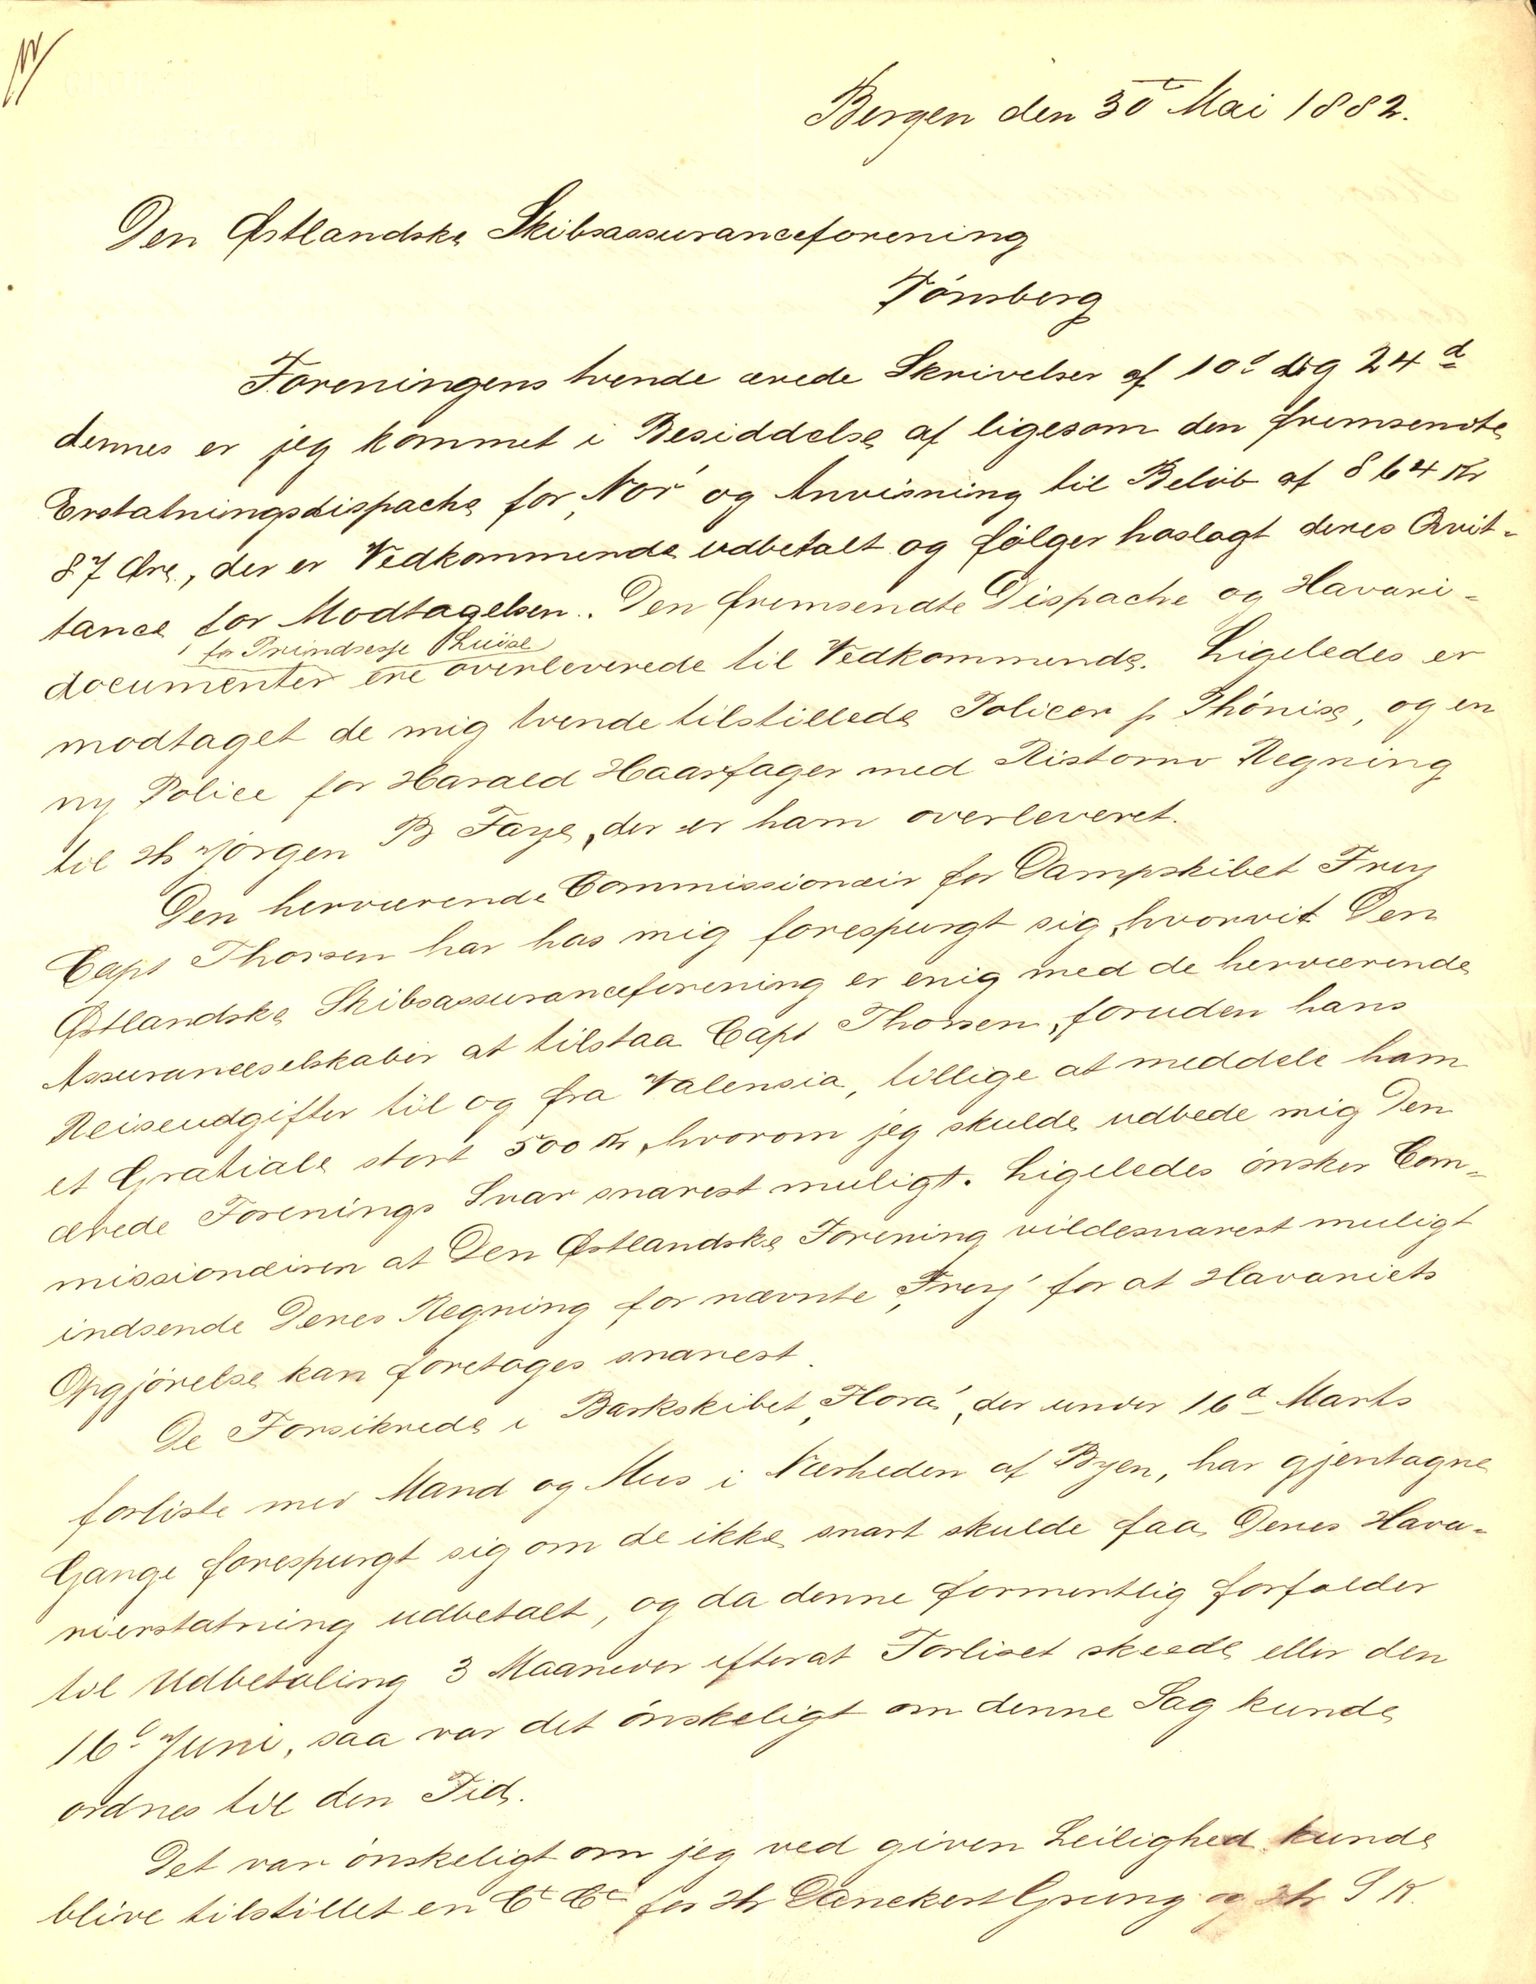 Bergen den 30t Mai 1882.
Den Østlandske Skibsassuranceforening
Tønsberg
Foreningens tvende ærede Skrivelser af 10d og 24d
dennes er jeg kommet i Besiddelse af ligesom den fremsendte
Erstatningsdispache for „Nor" og Anvisning til Beløb af 864 Kr
87 Øre, der er Vedkommende udbetalt og følger hoslagt deres Qvit-
tance for Modtagelsen. Den fremsendte Dispache og Havari-
for Prindsesse Luise
documenter ere overleverede til Vedkommende. Ligeledes er
modtaget de mig tvende tilstillede Policer p Phønise, og en
ny Police for Harald Haarfager med Ristorno Regning
til Hr Jørgen B Faye, der er ham overleveret.
Den herværende Commissionair for Dampskibet Frey
Capt Thorsen har hos mig forespurgt sig, hvorvit Den
Østlandske Skibsassuranceforening er enig med de herværende
Assuranceselskaber at tilstaa Capt Thorsen, foruden hans
Reiseudgifter til og fra Valensia, tillige at meddele ham
et Gratiale stort 500 Kr, hvorom jeg skulde udbede mig Den
ærede Forenings Svar snarest muligt. Ligeledes ønsker Com-
missionairen at Den Østlandske Forening vilde snarest muligt
indsende Deres Regning for nævnte „Frey" for at Havariets
Opgjørelse kan foretages snarest.
De Forsikrede i Barkskibet „Flora", der under 16d Marts
forliste med Mand og Mus i Nærheden af Byen, har gjentagne
Gange forespurgt sig om de ikke snart skulde faa Deres Hava-
rierstatning udbetalt, og da denne formentlig forfalder
til Udbetaling 3 Maaneder efterat Forliset skeede eller den
16d Juni, saa var det ønskeligt om denne Sag kunde
ordnes til den Tid.
Det var ønskeligt om jeg ved given Leilighed kunde
blive tilstillet en Ct Ct for Hr Danckert Grung og Hr S K.